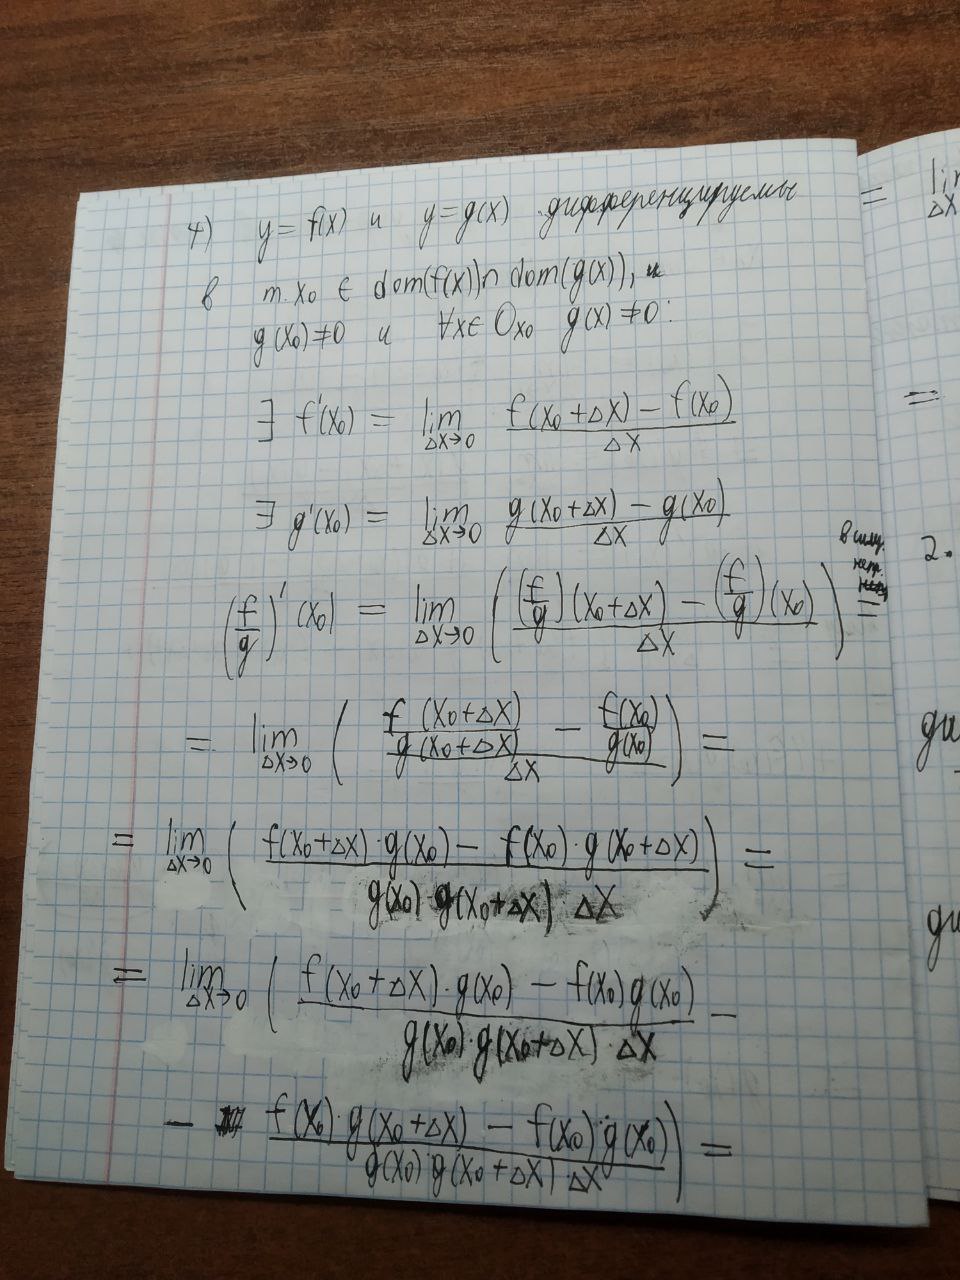 4) y = f(x) и y = g(x) дифференцируемы
в т. x₀ ∈ dom(f(x)) ∩ dom(g(x)), и
g(x₀) ≠ 0 и ∀x ∈ Ox₀ g(x) ≠ 0:
∃ f'(x₀) = lim_{Δx→0} (f(x₀+Δx) − f(x₀))/Δx
∃ g'(x₀) = lim_{Δx→0} (g(x₀+Δx) − g(x₀))/Δx
в силу
непр.
(f/g)'(x₀) = lim_{Δx→0} (((f/g)(x₀+Δx) − (f/g)(x₀))/Δx) =
= lim_{Δx→0} ((f(x₀+Δx)/g(x₀+Δx) − f(x₀)/g(x₀))/Δx) =
= lim_{Δx→0} ((f(x₀+Δx)·g(x₀) − f(x₀)·g(x₀+Δx))/(g(x₀)·g(x₀+Δx) Δx)) =
= lim_{Δx→0} ((f(x₀+Δx)·g(x₀) − f(x₀)g(x₀))/(g(x₀)·g(x₀+Δx)·Δx) −
− (f(x₀)·g(x₀+Δx) − f(x₀)·g(x₀))/(g(x₀)·g(x₀+Δx) Δx)) =
=
Δx
=
2.